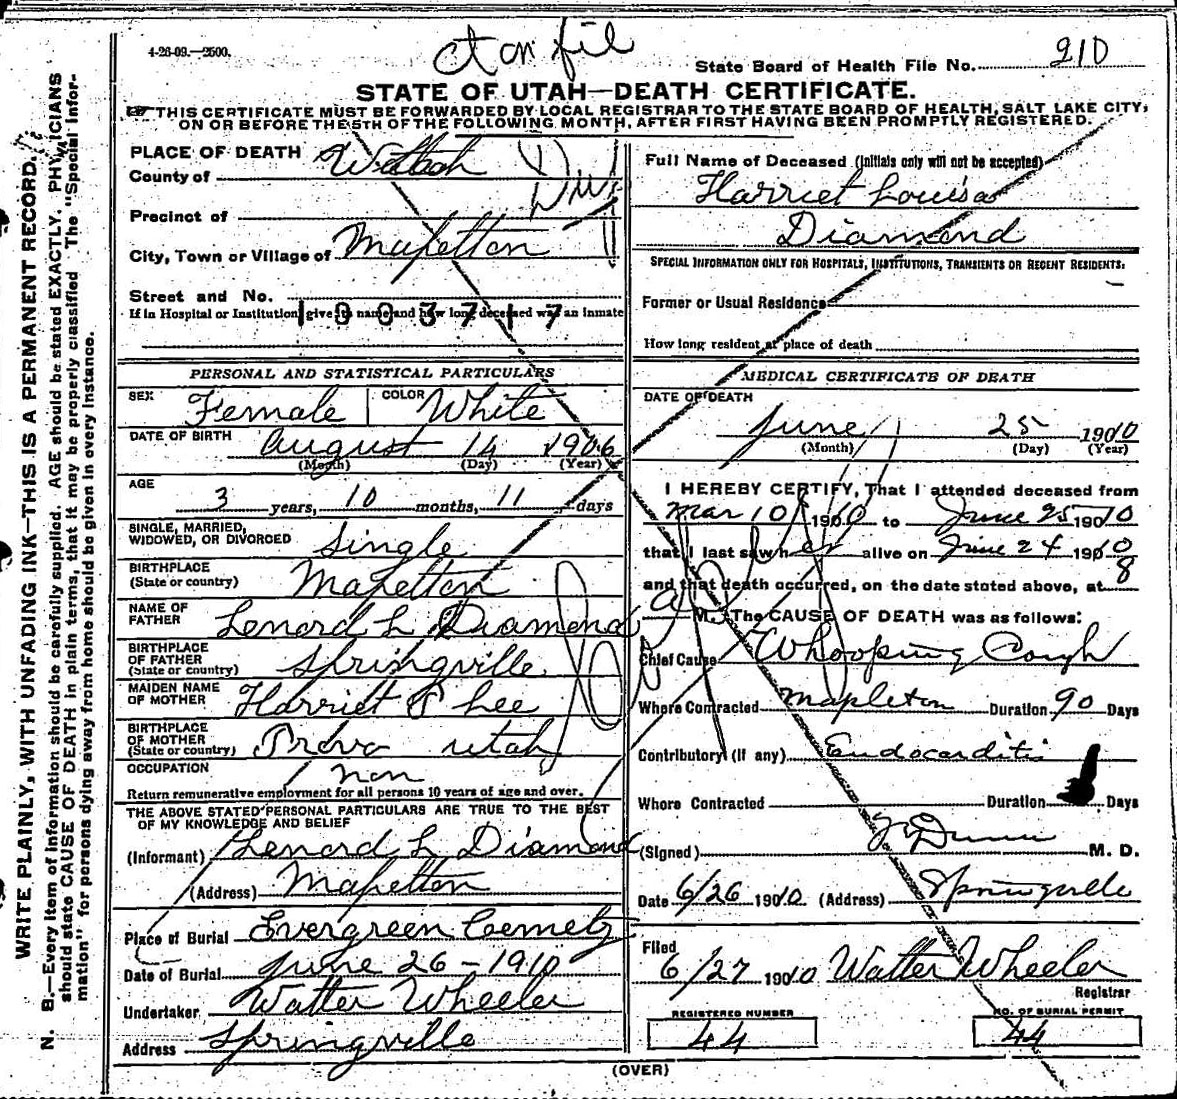 4-26-09.—2500.
ct on fil
State Board of Health File No. 210
STATE OF UTAH—DEATH CERTIFICATE.
THIS CERTIFICATE MUST BE FORWARDED BY LOCAL REGISTRAR TO THE STATE BOARD OF HEALTH, SALT LAKE CITY,
ON OR BEFORE THE 5TH OF THE FOLLOWING MONTH, AFTER FIRST HAVING BEEN PROMPTLY REGISTERED.
PLACE OF DEATH
County of
Precinct of
City, Town or Village of Mapelton
Street and No.
If in Hospital or Institution, give its name and how long deceased was an inmate
PERSONAL AND STATISTICAL PARTICULARS
SEX Female COLOR White
DATE OF BIRTH August 14 1906
(Month) (Day) (Year)
AGE
3 years, 10 months, 11 days
SINGLE, MARRIED,
WIDOWED, OR DIVORCED Single
BIRTHPLACE
(State or country) Mapelton
NAME OF
FATHER Lenord L Diamond
BIRTHPLACE
OF FATHER
(State or country) Springville
MAIDEN NAME
OF MOTHER Harriet P Lee
BIRTHPLACE
OF MOTHER
(State or country) Provo utah
OCCUPATION non
Return remunerative employment for all persons 10 years of age and over.
THE ABOVE STATED PERSONAL PARTICULARS ARE TRUE TO THE BEST
OF MY KNOWLEDGE AND BELIEF
(Informant) Lenord L Diamond
(Address) Mapelton
Place of Burial Evergreen
Date of Burial June 26-1910
Undertaker Walter Wheeler
Address Springville
Full Name of Deceased (Initials only will not be accepted)
Harriet Louisa
Diamond
SPECIAL INFORMATION ONLY FOR HOSPITALS, INSTITUTIONS, TRANSIENTS OR RECENT RESIDENTS:
Former or Usual Residence
How long resident at place of death
MEDICAL CERTIFICATE OF DEATH
DATE OF DEATH
June 25 1910
(Month) (Day) (Year)
I HEREBY CERTIFY, That I attended deceased from
Mar 10 1910 to June 25 1910
that I last saw her alive on June 24 1910
and that death occurred, on the date stated above, at 8
a M. The CAUSE OF DEATH was as follows:
Chief Cause Whooping Cough
Where Contracted Mapleton Duration 90 Days
Contributory (if any) Endocarditis
Where Contracted Duration Days
(Signed) Dunn M. D.
Date 6/26 1910. (Address) Springville
Filed
6/27 1910 Walter Wheeler
Registrar
REGISTERED NUMBER
44
NO. OF BURIAL PERMIT
44
(OVER)
WRITE PLAINLY, WITH UNFADING INK—THIS IS A PERMANENT RECORD.
N. B.—Every item of information should be carefully supplied. AGE should be stated EXACTLY. PHYSICIANS
should state CAUSE OF DEATH in plain terms, that it may be properly classified. The "Special Infor-
mation" for persons dying away from home should be given in every instance.